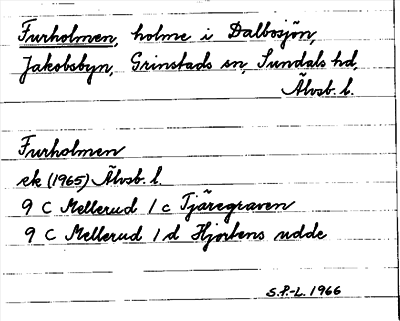 Furholmen, holme i Dalbosjön,
Jakobsbyn, Grinstads sn, Sundals hd,
Älvsb. l.
Furholmen
ek (1965) Älvsb. l.
9 C Mellerud 1 c Tjäregraven
9 C Mellerud 1 d Hjortens udde
S.P-L. 1966